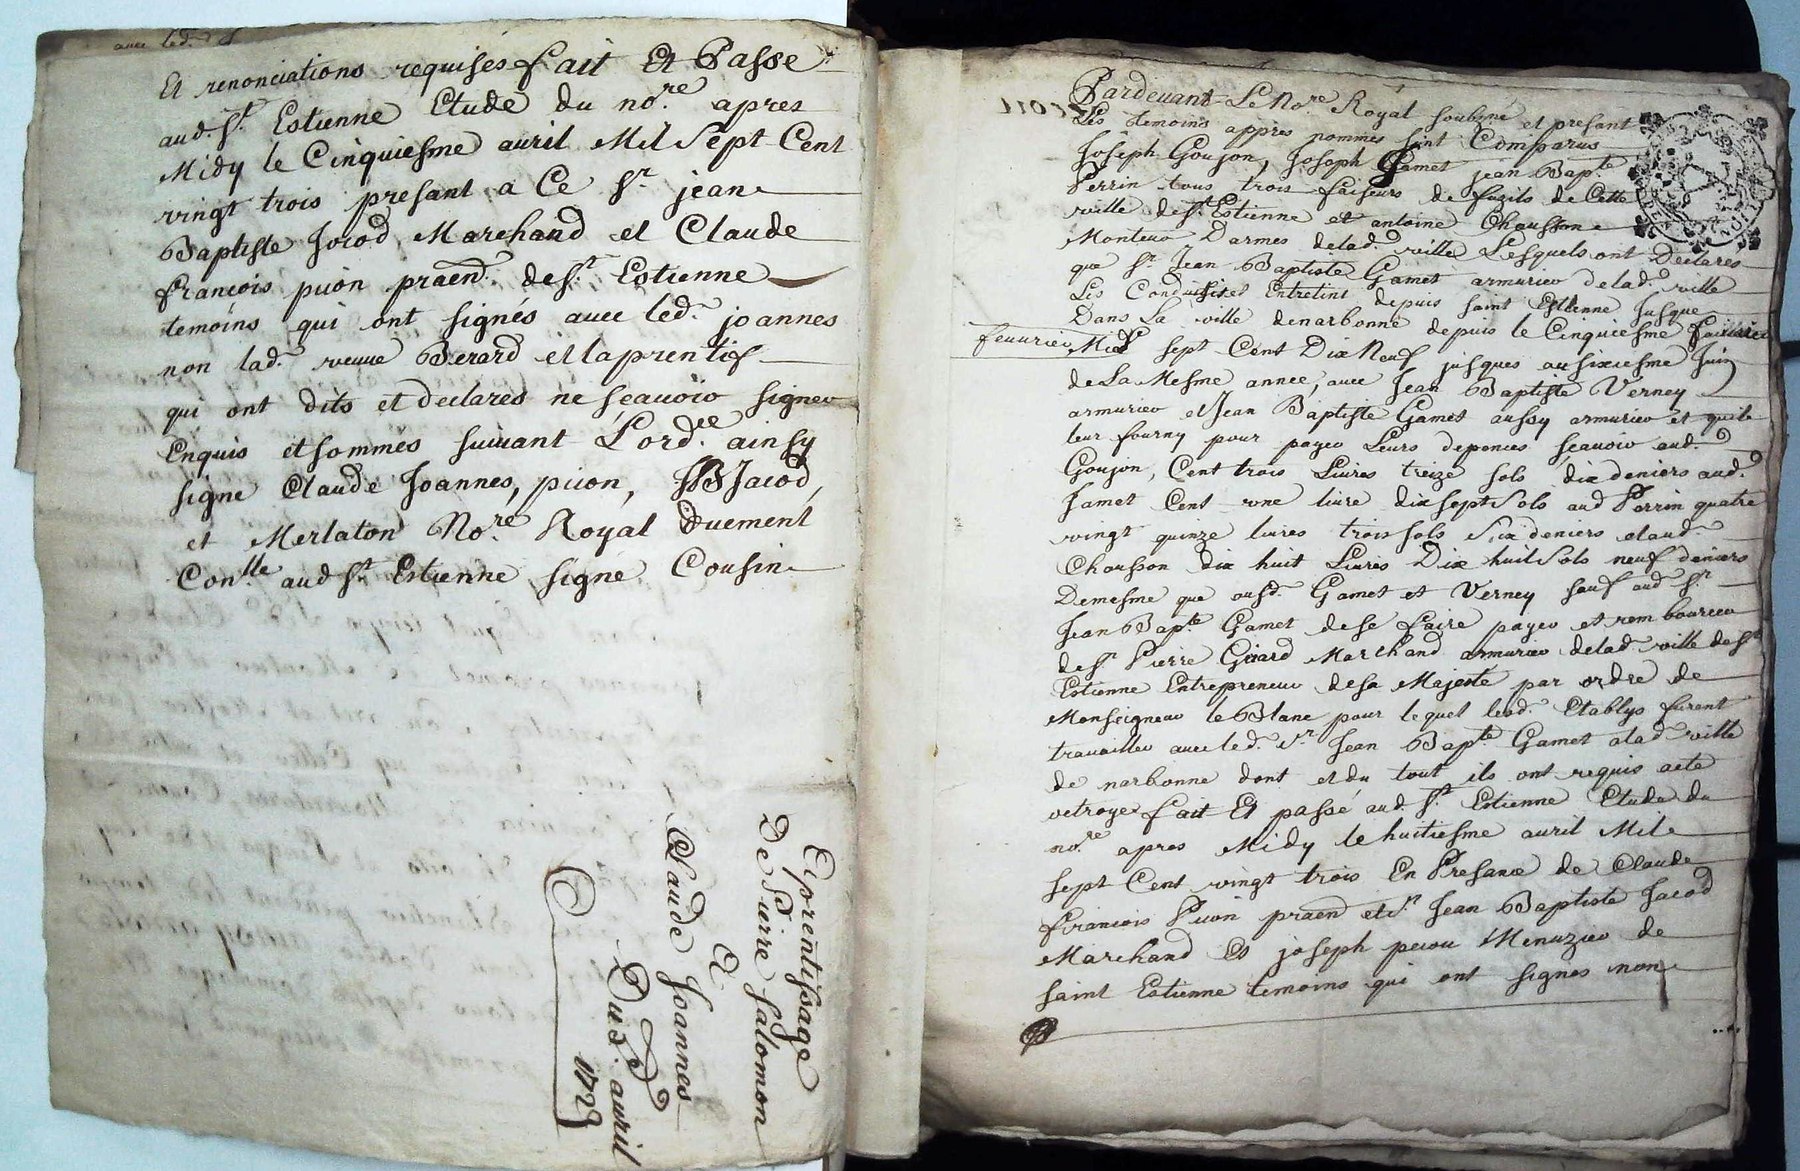 avec led.
Et renonciations requises fait Et Passe
aud. St. Estienne Etude du nore. apres
Midy le Cinquiesme avril Mil Sept Cent
vingt trois presant a Ce Sr. jean
Baptiste Jacod Marchand et Claude
francois piion praend. de St. Estienne
temoins qui ont signés avec led. joannes
non lad. veuve Berard et laprentif
qui ont dits et declarés ne sçauoir signer
Enquis et sommés suiuant L'ordce. ainsy
signe Claude Joannes, piion, JB Jacod,
et Merlaton Nore. Royal Duement
Conlle aud St. Estienne signé Cousin
Aprentissage
De Pierre Salomon
A
Claude Joannes
Du 5. auril
1723
Pardeuant Le Nore. Royal soubsné et presant
Les temoins appres nommés sont Comparus
Joseph Goujon, Joseph Gamet jean Bapte.
Perrin tous trois faiseurs de fuzils de Cette
ville de St. Estienne et antoine Chausson
Monteur Darmes de lad. ville Lesquels ont Declarés
que Sr. Jean Baptiste Gamet armurier de lad. ville
Les Conduisit et Entretint depuis saint Estienne jusque
Dans La ville de narbonne depuis le Cinquiesme
feuurier Mil sept Cent Dix Neuf jusques au sixiesme Juin
de La Mesme année, auec Jean Baptiste Verney
armurier et Jean Baptiste Gamet aussy armurier et quil
leur fourny pour payer Leurs depences sçauoir aud.
Goujon, Cent trois Liures treize sols dix deniers aud.
Jamet Cent vne liure dix sept Sols aud Perrin quatre
vingt quinze liures trois sols Six deniers et aud.
Chausson dix huit Liures Dix huit Sols neuf deniers
De mesme que ausd. Gamet et Verney sauf aud Sr.
Jean Bapte. Gamet de se faire payer et rembourcer
de Sr. Pierre Girard Marchand armurier de lad ville de St
Estienne Entrepreneur de sa Majesté par ordre de
Monseigneur le Blanc pour lequel lesd. Etablys furent
trauailler auec led. Sr. Jean Bapte. Gamet a lad ville
de narbonne dont et du tout ils ont requis acte
octroyé fait Et passé aud. St. Estienne Etude du
nore. apres Midy le huitiesme auril Mil
sept Cent vingt trois En Presance de Claude
francois Piion praend et Sr. Jean Baptiste Jacod
Marchand Et joseph Menuzier de
saint Estienne temoins qui ont signes non